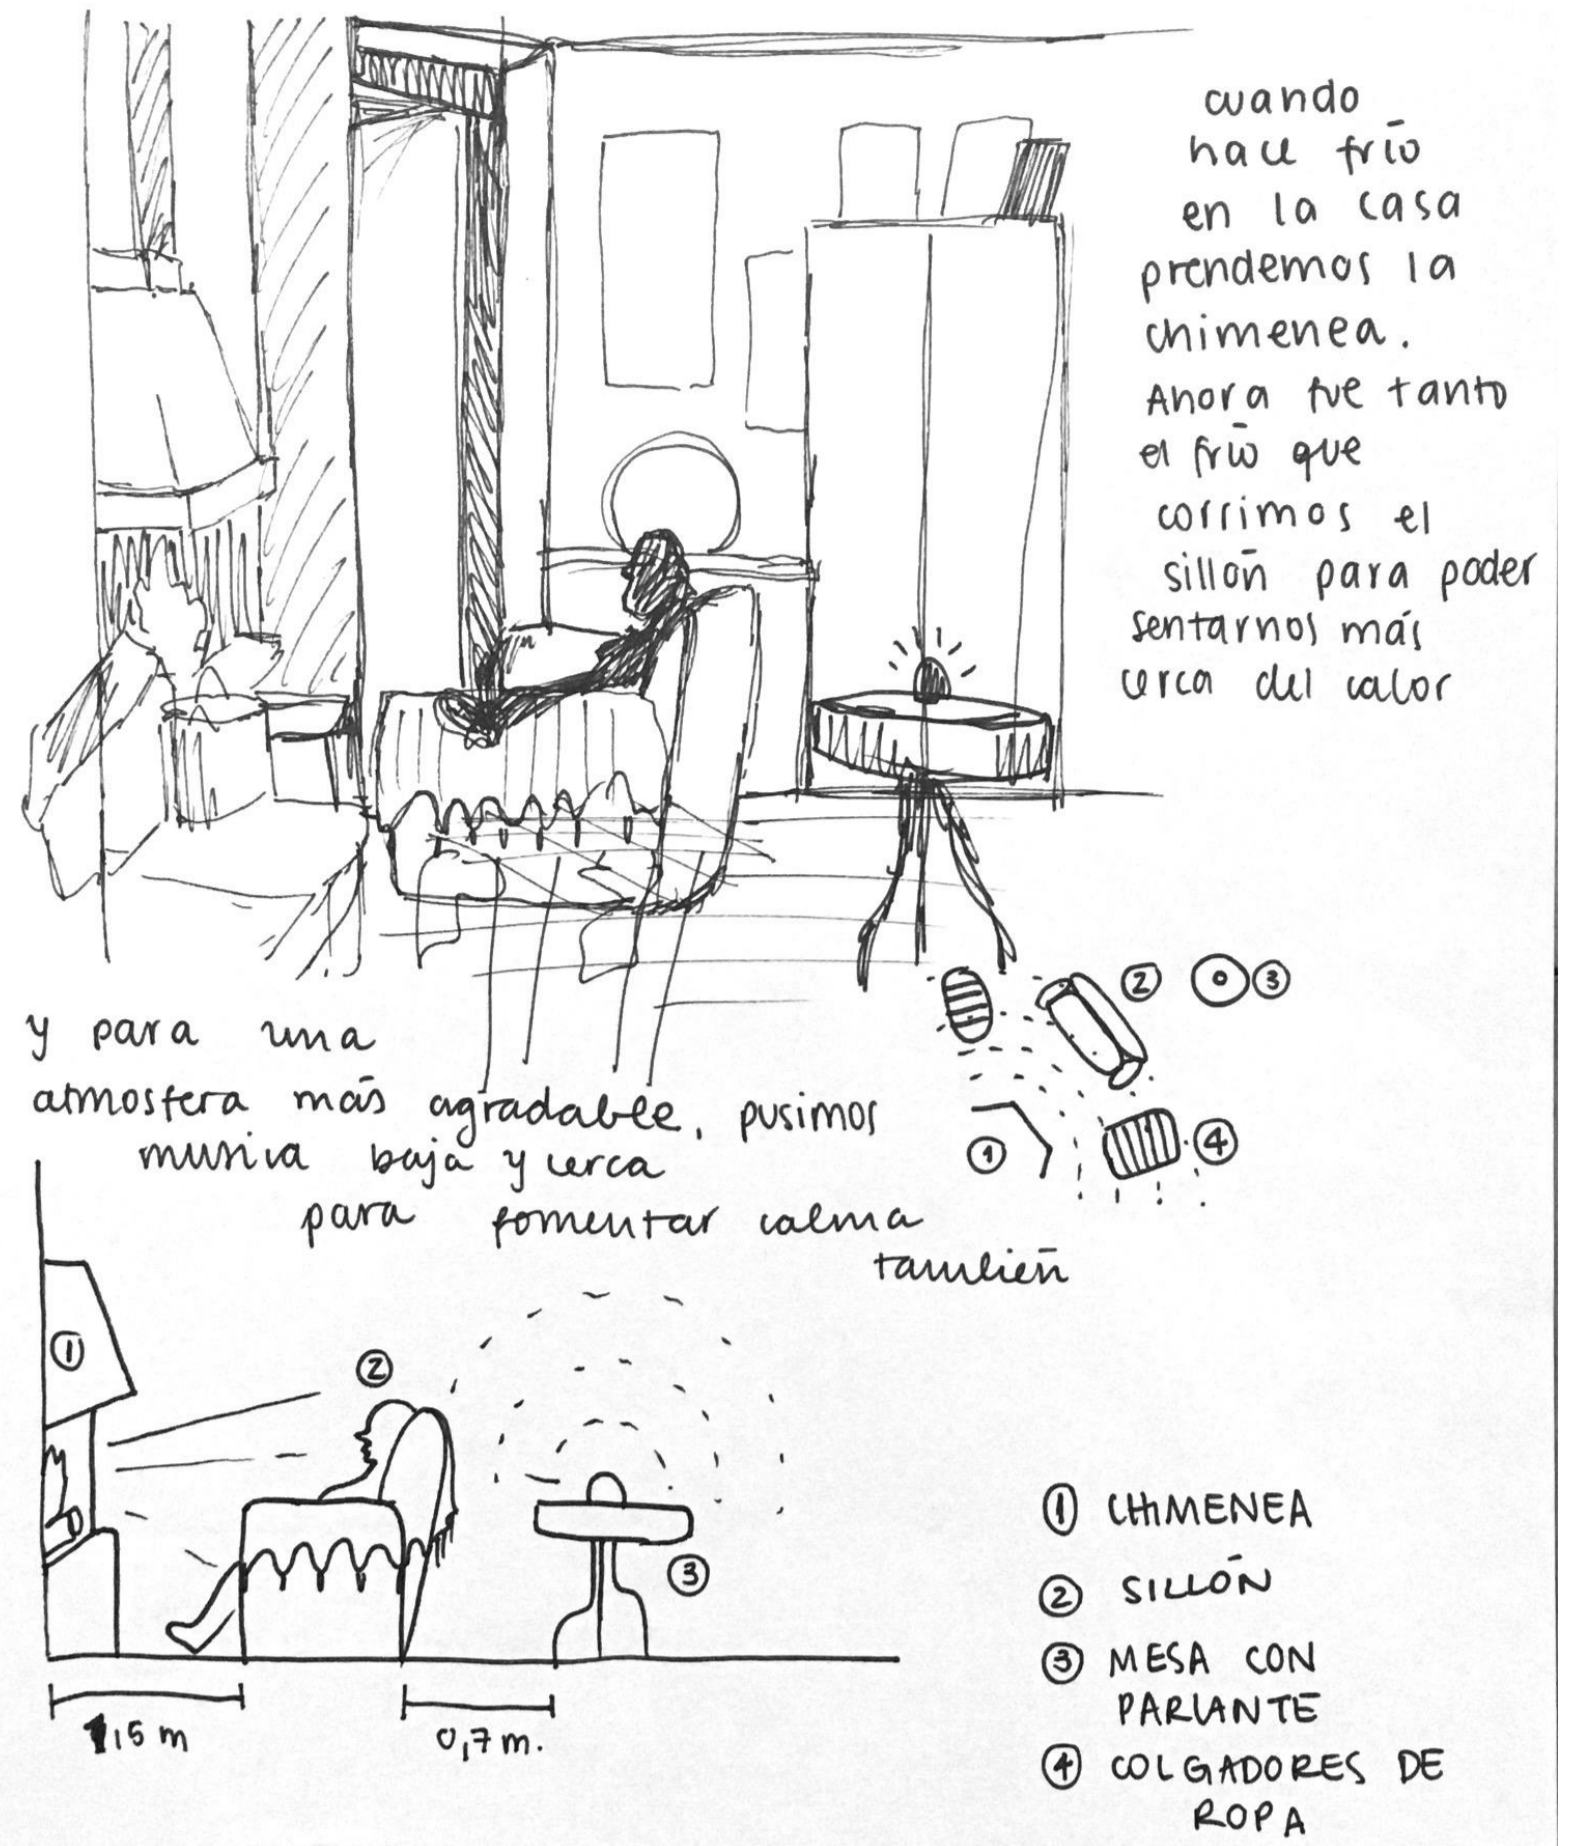 cuando
hace frío
en la casa
prendemos la
chimenea.
Ahora fue tanto
el frío que
corrimos el
sillón para poder
sentarnos más
cerca del calor
② ③
① ④
y para una
atmosfera más agradable, pusimos
musica baja y cerca
para fomentar calma
también
①
②
③
1,5 m
0,7 m.
① CHIMENEA
② SILLÓN
③ MESA CON
PARLANTE
④ COLGADORES DE
ROPA